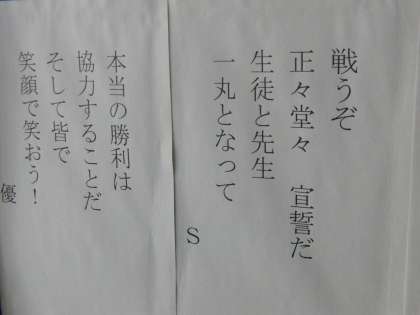 戦うぞ
正々堂々　宣誓だ
生徒と先生
一丸となって
S
本当の勝利は
協力することだ
そして皆で
笑顔で笑おう！
優